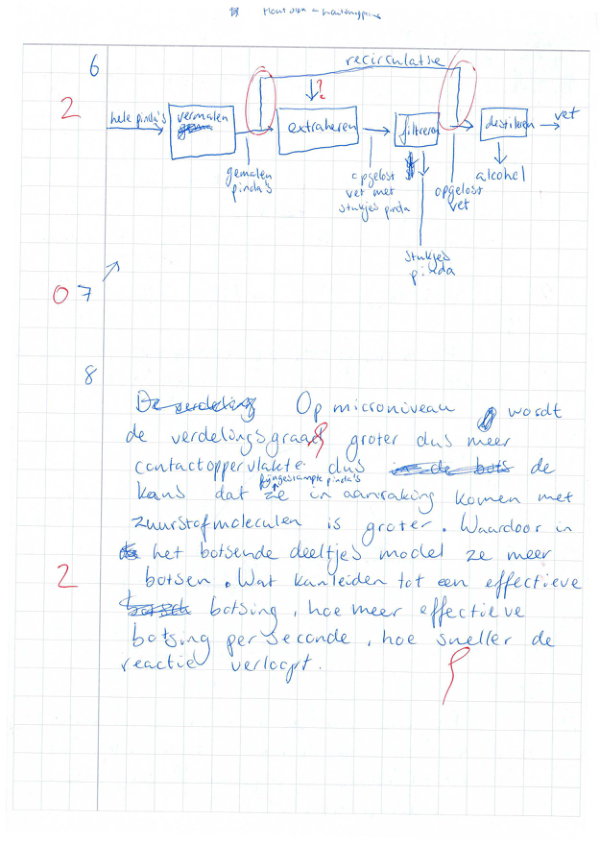 6
recirculatie
2
hele pinda's
vermalen
?
extraheren
filtreren
destilleren
vet
gemalen
pinda's
opgelost
vet met
stukjes pinda
opgelost
vet
alcohol
stukjes
pinda
0 7
8
De verdeling Op microniveau wordt
de verdelingsgraad groter dus meer
contactoppervlakte dus in de bots de
fijngestampte pinda's
kans dat ze in aanraking komen met
zuurstofmoleculen is groter. Waardoor in
het botsende deeltjes model ze meer
2
botsen. Wat kan leiden tot een effectieve
botsing, hoe meer effectieve
botsing per seconde, hoe sneller de
reactie verloopt.